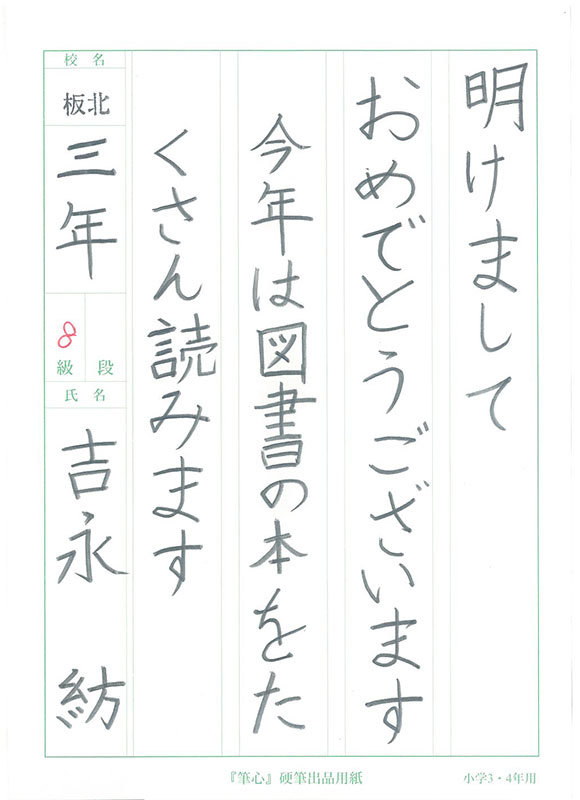 明けまして
おめでとうございます
今年は図書の本をた
くさん読みます
校名
板北
三年
8
級 段
氏名
吉永 紡
『筆心』硬筆出品用紙
小学3・4年用